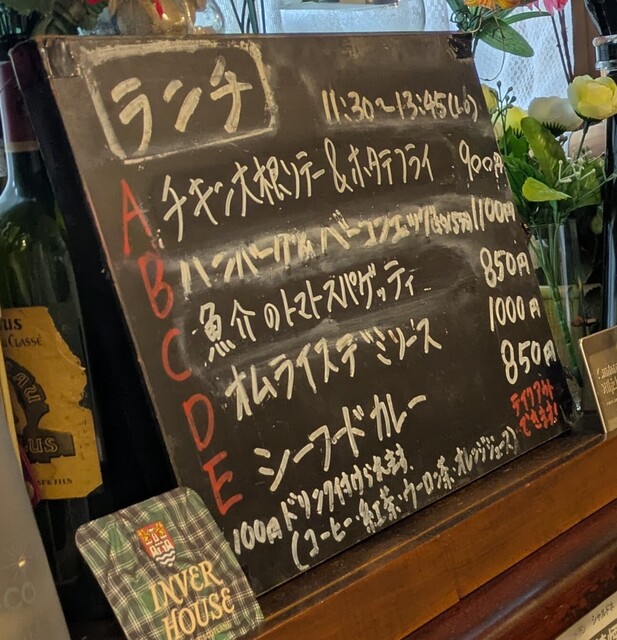 ランチ
11:30～13:45(L.O)
A チキン大根ソテー&ホタテフライ 900円
B ハンバーグ&ベーコンエッグ 1100円
C 魚介のトマトスパゲッティ 850円
D オムライスデミソース 1000円
E シーフードカレー 850円
テイクアウト
できます!
100円ドリンク付けられます
(コーヒー・紅茶・ウーロン茶・オレンジジュース)
INVER
HOUSE
CLASSÉ